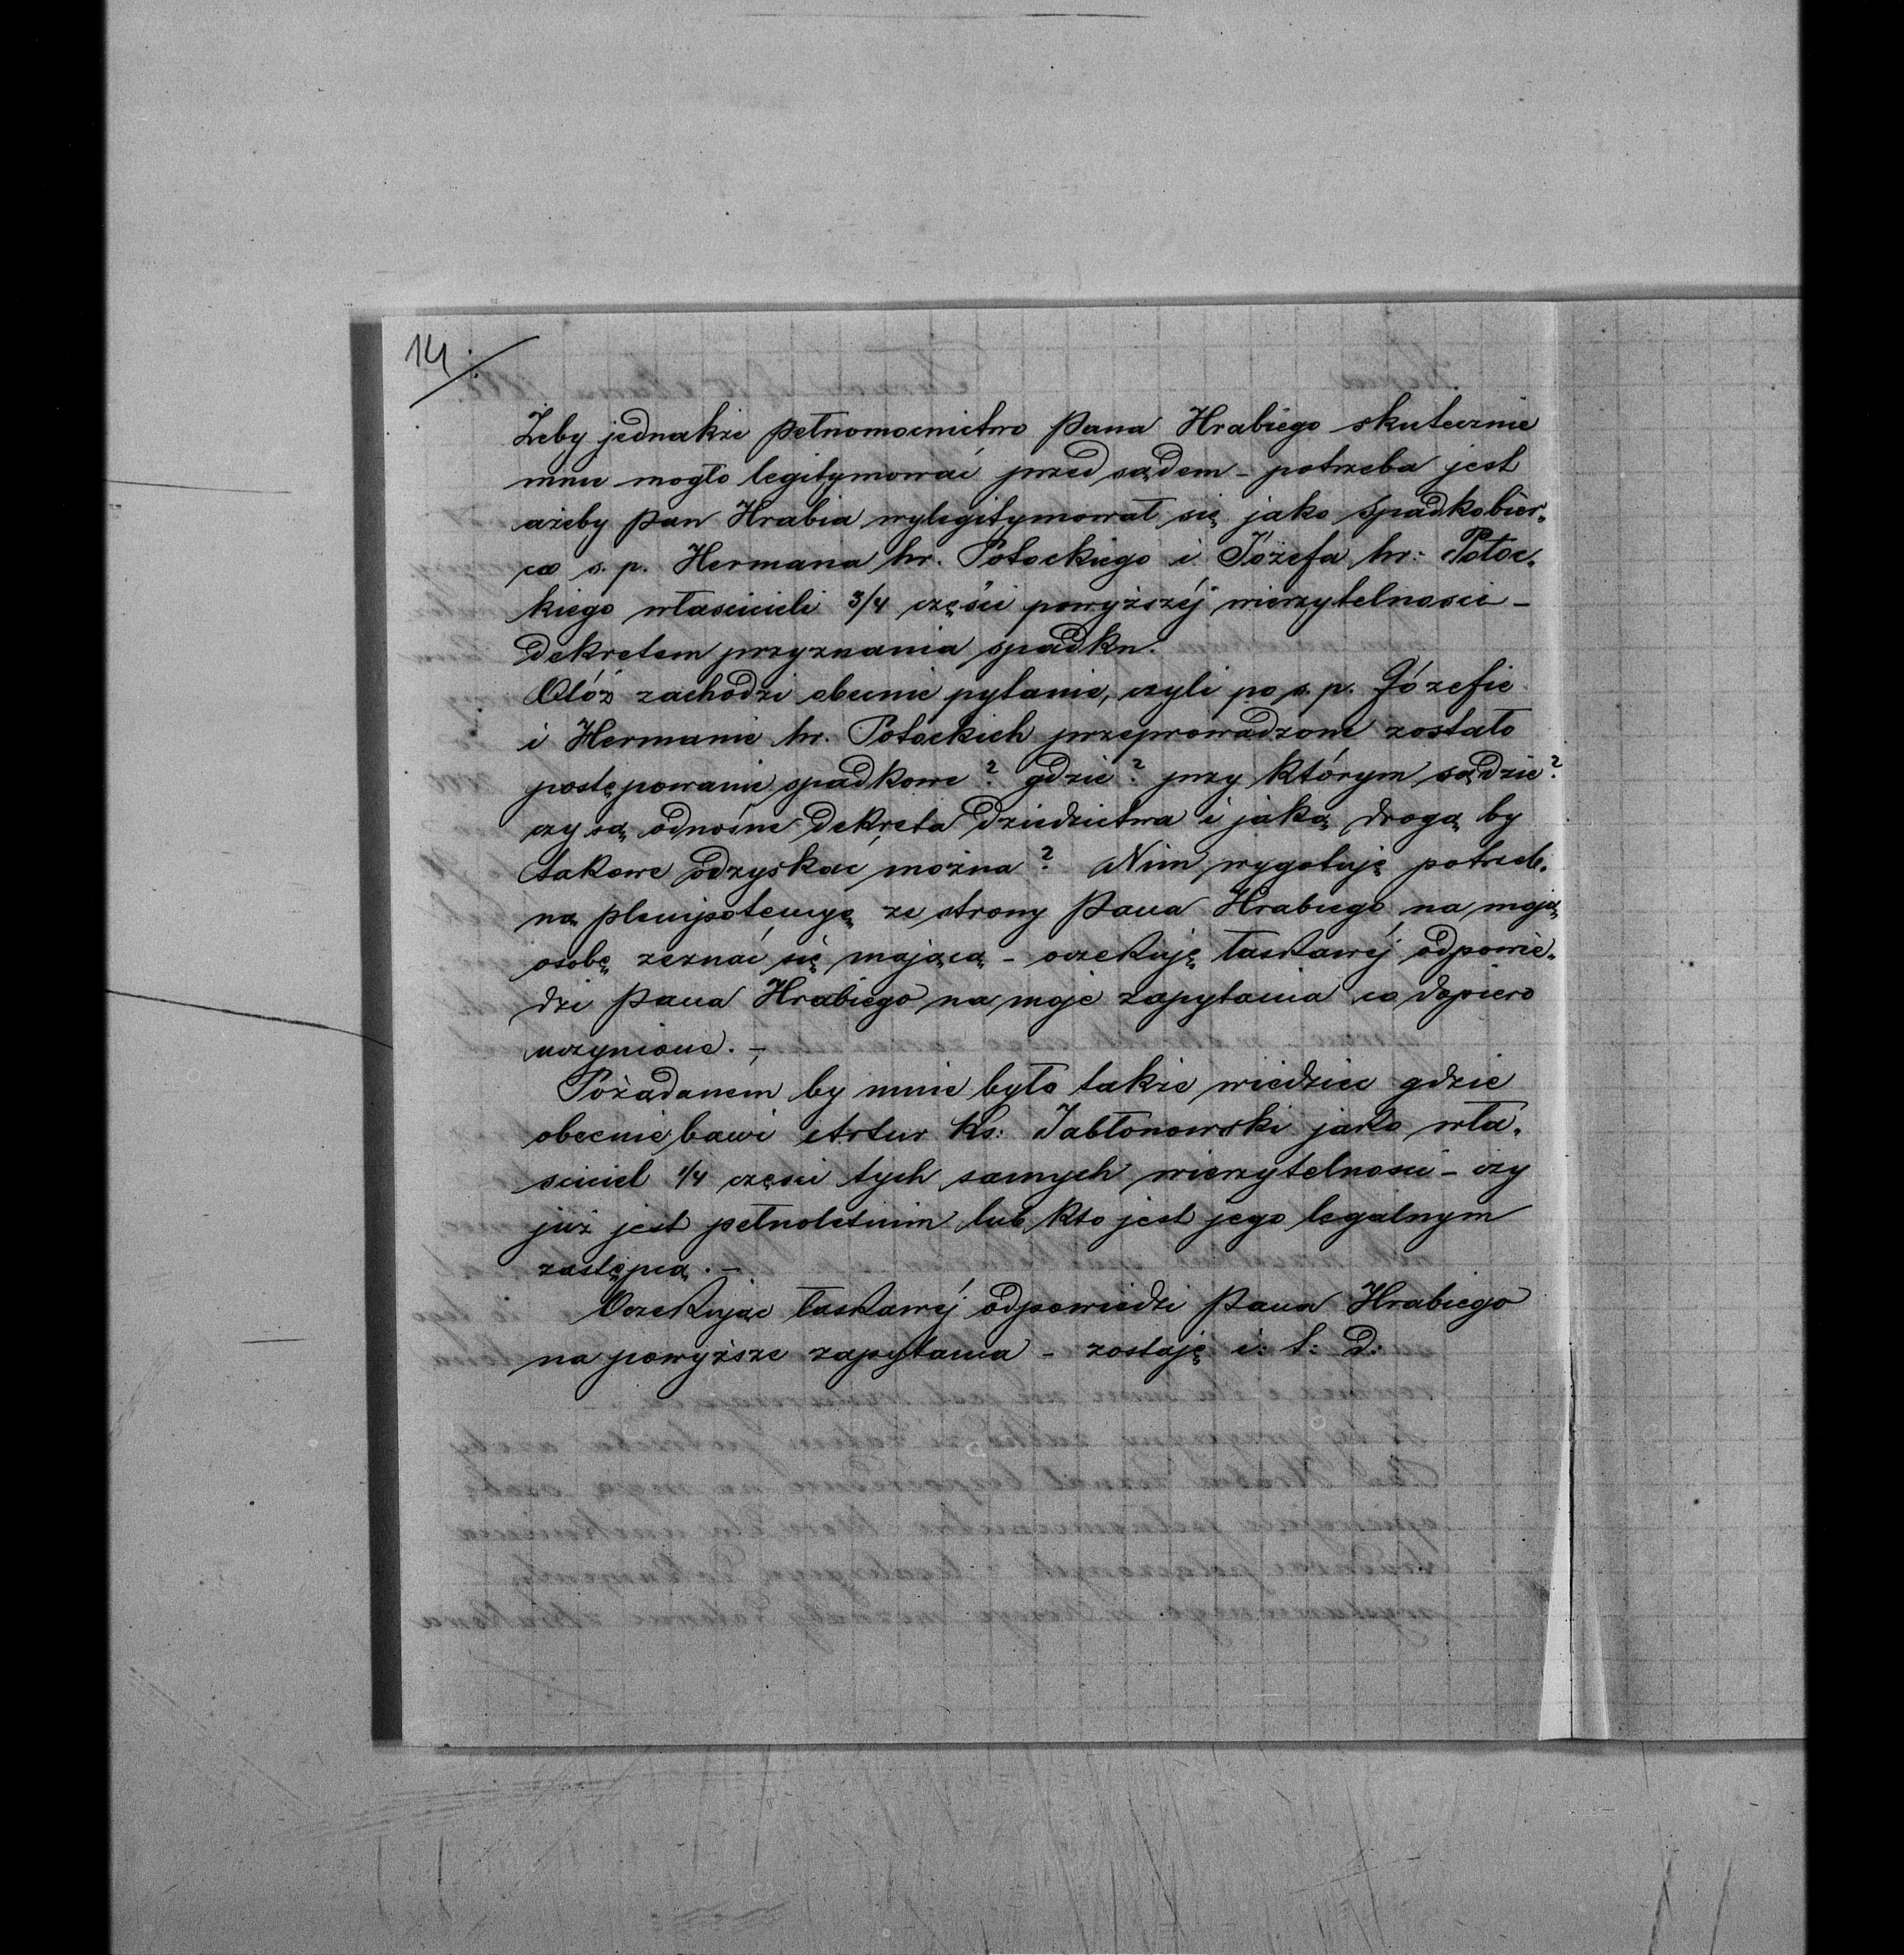 14/.
Żeby jednakże pełnomocnictwo Pana Hrabiego skutecznie
mnie mogło legitymować przed sądem - potrzeba jest
ażeby Pan Hrabia wylegitymował się jako spadkobier„
ca s. p. Hermana hr. Potockiego i Józefa hr: Potoc„
kiego właścicieli 3/4 części powyższéj wierzytelności -
dekretem przyznania spadku.
Otóż zachodzi obecnie pytanie, czyli po s. p. Józefie
i Hermanie hr. Potockich przeprowadzone zostało
postępowanie spadkowe? gdzie? przy którym sądzie?
czy są odnośne dekreta dziedzictwa i jaką drogą by
takowe odzyskać można? Nim wygotuję potrzeb„
ną plenipotencyę ze strony Pana Hrabiego na moją
osobę zeznać się mającą - oczekuję łaskawéj odpowie„
dzi Pana Hrabiego na moje zapytania co dopiero
uczynione. -
Pożądanem by mnie było także wiedzieć gdzie
obecnie bawi Artur Ks: Jabłonowski jako wła„
ściciel 1/4 części tych samych wierzytelności - czy
już jest pełnoletnim lub kto jest jego legalnym
zastępcą. -
Oczekując łaskawéj odpowiedzi Pana Hrabiego
na powyższe zapytania - zostaję i: t: d: